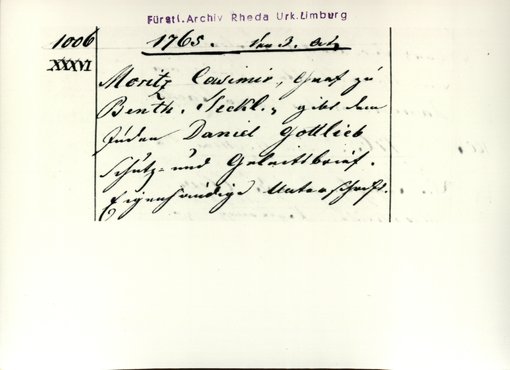 Fürstl. Archiv Rheda Urk. Limburg
1006
XXXVI
1765. den 3. Octz
Moritz Casimir, Graf zu
Benth. Teckl., gibt dem
Juden Daniel Gottlieb
Schutz- und Geleitsbrief.
Eigenhändige Unterschrift.